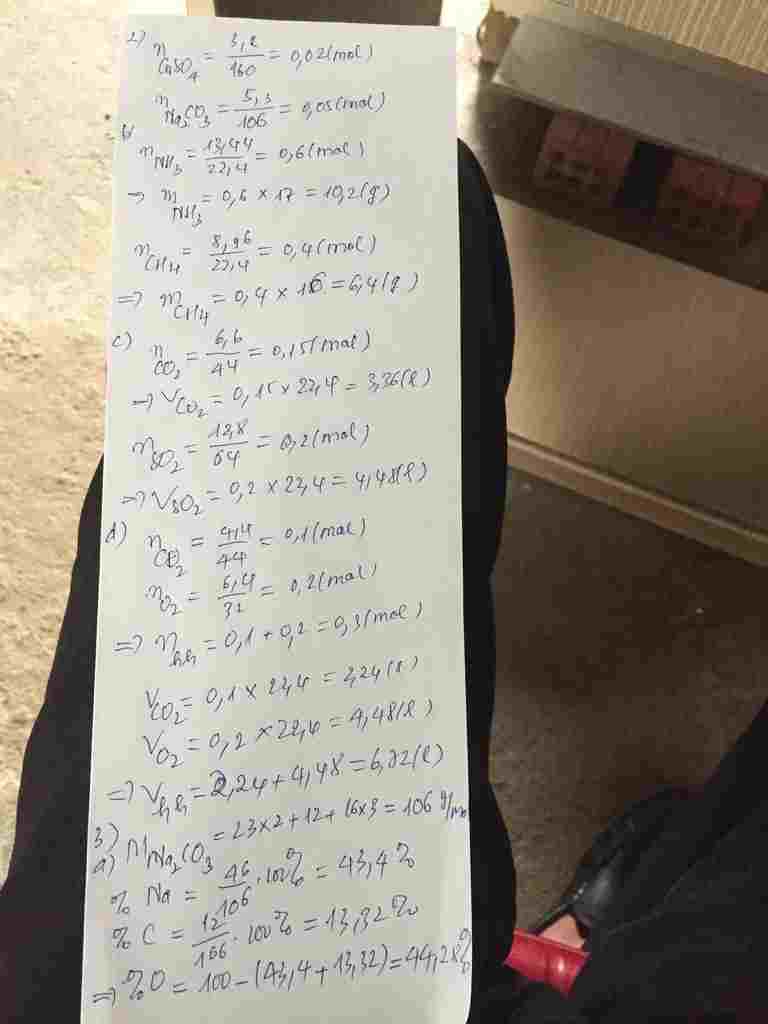 2) n CuSO4 = 3,2/160 = 0,02(mol)
n Na2CO3 = 5,3/106 = 0,05(mol)
b) n NH3 = 13,44/22,4 = 0,6(mol)
→ m NH3 = 0,6 × 17 = 10,2(g)
n CH4 = 8,96/22,4 = 0,4(mol)
=> m CH4 = 0,4 × 16 = 6,4(g)
c) n CO2 = 6,6/44 = 0,15(mol)
→ V CO2 = 0,15 × 22,4 = 3,36(l)
n SO2 = 12,8/64 = 0,2(mol)
=> V SO2 = 0,2 × 22,4 = 4,48(l)
d) n CO2 = 4,4/44 = 0,1(mol)
n O2 = 6,4/32 = 0,2(mol)
=> n hh = 0,1 + 0,2 = 0,3(mol)
V CO2 = 0,1 × 22,4 = 2,24(l)
V O2 = 0,2 × 22,4 = 4,48(l)
=> V hh = 2,24 + 4,48 = 6,72(l)
3) M Na2CO3 = 23×2 + 12 + 16×3 = 106 g/mo
a) % Na = 46/106 . 100% = 43,4%
% C = 12/106 . 100% = 13,32%
=> %O = 100 - (43,4 + 13,32) = 44,28%